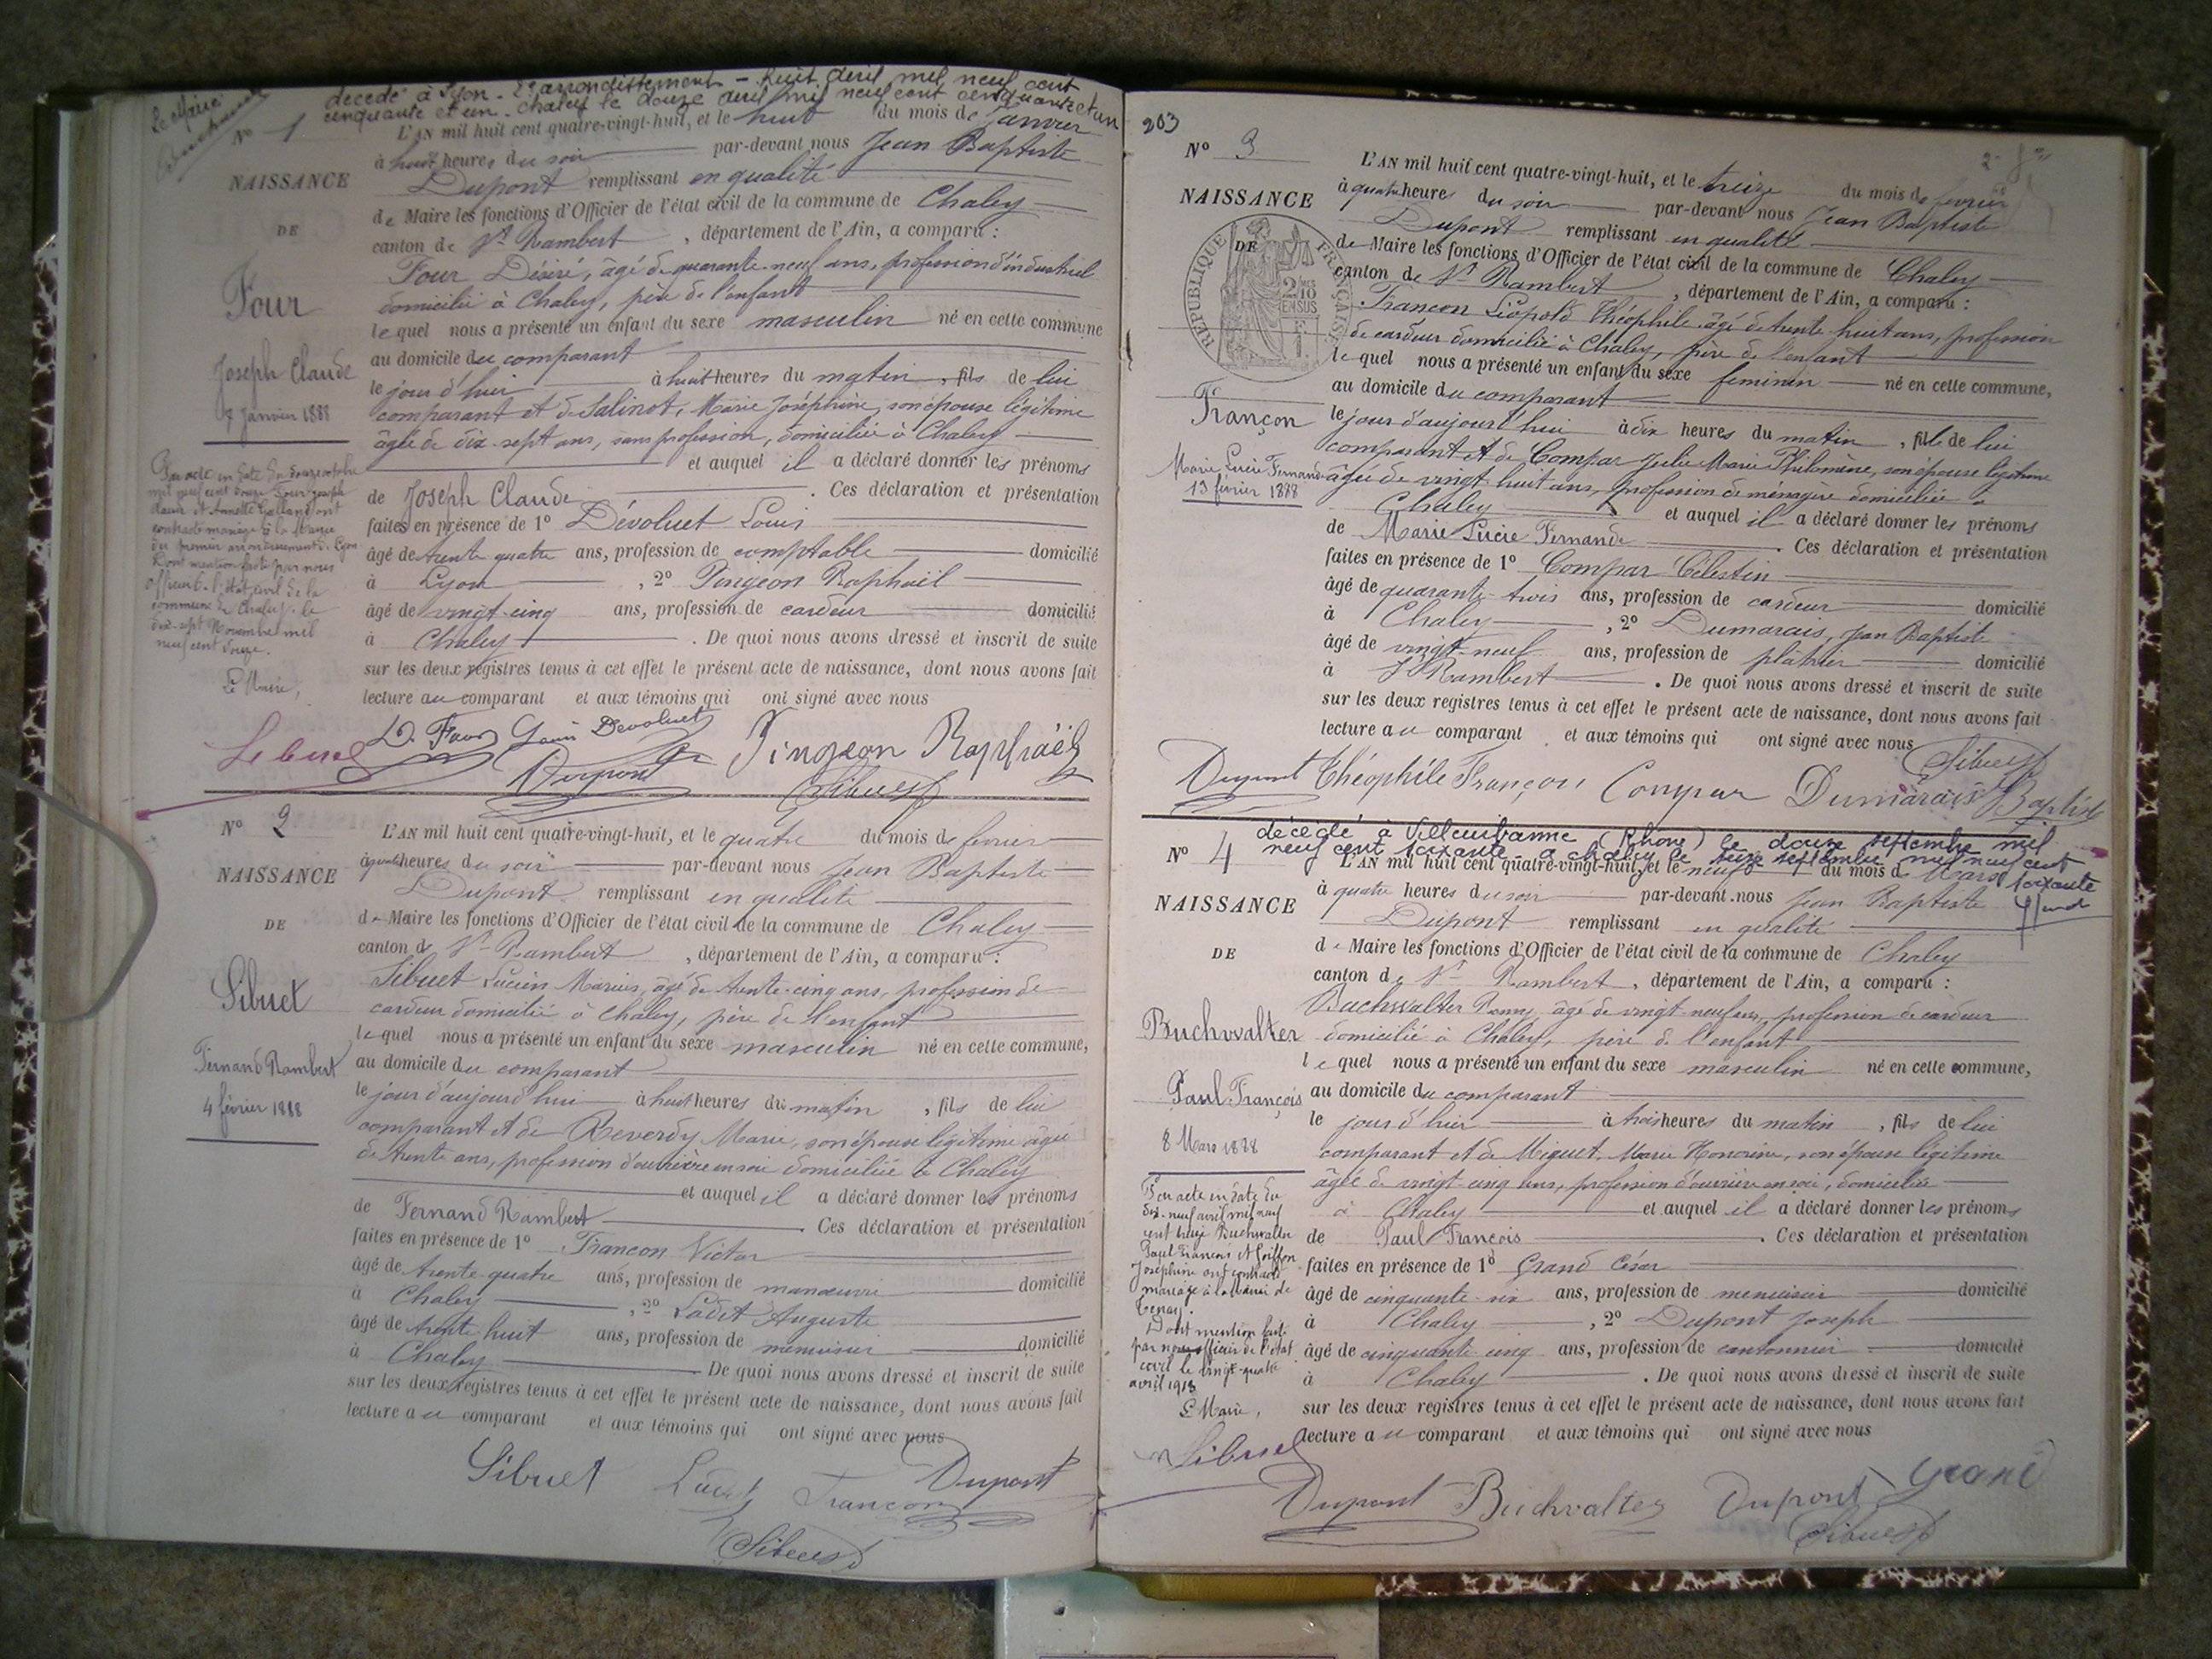 Le Maire
décédé à Lyon - 2e arrondissement - huit avril mil neuf cent
cinquante et un - chaley le douze avril mil neuf cent cinquante et un
N° 1 L'AN mil huit cent quatre-vingt-huit, et le huit du mois de janvier
à huit heures du soir par-devant nous Jean Baptiste
NAISSANCE Dupont remplissant en qualité
de Maire les fonctions d'Officier de l'état civil de la commune de Chaley
DE canton de St Rambert, département de l'Ain, a comparu :
Four Désiré, âgé de quarante-neuf ans, profession d'industriel
Four domicilié à Chaley, père de l'enfant
lequel nous a présenté un enfant du sexe masculin né en cette commune
au domicile du comparant
Joseph Claude le jour d'hier à huit heures du matin, fils de lui
7 Janvier 1888 comparant et de Salinot, Marie Joséphine, son épouse légitime
âgée de dix-sept ans, sans profession, domiciliée à Chaley
et auquel il a déclaré donner les prénoms
de Joseph Claude. Ces déclaration et présentation
faites en présence de 1° Dévoluet Louis
âgé de trente quatre ans, profession de comptable domicilié
à Lyon, 2° Pingeon Raphaël
âgé de vingt-cinq ans, profession de cardeur domicilié
à Chaley. De quoi nous avons dressé et inscrit de suite
sur les deux registres tenus à cet effet le présent acte de naissance, dont nous avons fait
lecture au comparant et aux témoins qui ont signé avec nous
Par acte en date du douze
mil neuf cent douze Four Joseph
Claude et Annette ont
contracté mariage à la Mairie
du premier arrondissement de Lyon
Dont mention faite par nous
officier de l'état civil de la
commune de Chaley le
dix-sept Novembre mil
neuf cent douze.
Le Maire,
D. Four Louis Devoluet Pingeon Raphaël
Dupont Sibuet
N° 2 L'AN mil huit cent quatre-vingt-huit, et le quatre du mois de fevrier
à quatre heures du soir par-devant nous Jean Baptiste
NAISSANCE Dupont remplissant en qualité
DE de Maire les fonctions d'Officier de l'état civil de la commune de Chaley
canton de St Rambert, département de l'Ain, a comparu :
Sibuet Lucien Marius, âgé de trente-cinq ans, profession de
Sibuet cardeur domicilié à Chaley, père de l'enfant
lequel nous a présenté un enfant du sexe masculin né en cette commune,
Fernand Rambert au domicile du comparant
4 février 1888 le jour d'aujourd'hui à huit heures du matin, fils de lui
comparant et de Reverdy Marie, son épouse légitime âgée
de trente ans, profession d'ouvrière en soie domiciliée à Chaley
et auquel il a déclaré donner les prénoms
de Fernand Rambert. Ces déclaration et présentation
faites en présence de 1° Francon Victor
âgé de trente-quatre ans, profession de manœuvre domicilié
à Chaley, 2° Ladet Auguste
âgé de trente huit ans, profession de menuisier domicilié
à Chaley De quoi nous avons dressé et inscrit de suite
sur les deux registres tenus à cet effet le présent acte de naissance, dont nous avons fait
lecture au comparant et aux témoins qui ont signé avec nous
Sibuet Francon Dupont
Sibuet
203
N° 3 L'AN mil huit cent quatre-vingt-huit, et le treize du mois de fevrier
à quatre heure du soir par-devant nous Jean Baptiste
NAISSANCE Dupont remplissant en qualité
DE de Maire les fonctions d'Officier de l'état civil de la commune de Chaley
canton de St Rambert, département de l'Ain, a comparu :
REPUBLIQUE FRANÇAISE
2/10 EN SUS
Francon Léopold Théophile âgé de trente huit ans, profession
de cardeur domicilié à Chaley, père de l'enfant
lequel nous a présenté un enfant du sexe feminin né en cette commune,
au domicile du comparant
Françon le jour d'aujourd'hui à dix heures du matin, fille de lui
comparant et de Compar Julie Marie Philomène, son épouse légitime
Marie Lucie Fernande âgée de vingt-huit ans, profession de ménagère domiciliée à
13 février 1888 Chaley et auquel il a déclaré donner les prénoms
de Marie Lucie Fernande. Ces déclaration et présentation
faites en présence de 1° Compar Célestin
âgé de quarante-trois ans, profession de cardeur domicilié
à Chaley, 2° Dumarais, Jean Baptiste
âgé de vingt-neuf ans, profession de plâtrier domicilié
à St Rambert. De quoi nous avons dressé et inscrit de suite
sur les deux registres tenus à cet effet le présent acte de naissance, dont nous avons fait
lecture au comparant et aux témoins qui ont signé avec nous
Sibuet
Dupont Théophile Françon Compar Dumarais Baptiste
décédé à Villeurbanne (Rhône) le douze septembre mil
neuf cent soixante - a chaley le seize septembre mil neuf cent
soixante
N° 4 L'AN mil huit cent quatre-vingt-huit, et le neuf du mois de Mars
à quatre heures du soir par-devant nous Jean Baptiste
NAISSANCE Dupont remplissant en qualité
DE de Maire les fonctions d'Officier de l'état civil de la commune de Chaley
canton de St Rambert, département de l'Ain, a comparu :
Buchwalter Remy, âgé de vingt-neuf ans, profession de cardeur
Buchwalter domicilié à Chaley, père de l'enfant
lequel nous a présenté un enfant du sexe masculin né en cette commune,
Paul François au domicile du comparant
le jour d'hier à trois heures du matin, fils de lui
8 Mars 1888 comparant et de Miguet, Marie Honorine, son épouse légitime
âgée de vingt-cinq ans, profession d'ouvrière en soie, domiciliée
à Chaley et auquel il a déclaré donner les prénoms
de Paul François. Ces déclaration et présentation
faites en présence de 1° Grand César
âgé de cinquante-six ans, profession de menuisier domicilié
à Chaley, 2° Dupont Joseph
âgé de cinquante-cinq ans, profession de cantonnier domicilié
à Chaley. De quoi nous avons dressé et inscrit de suite
sur les deux registres tenus à cet effet le présent acte de naissance, dont nous avons fait
lecture au comparant et aux témoins qui ont signé avec nous
Par acte en date du
dix-neuf avril mil neuf
cent treize Buchwalter
Paul François et Goiffon
Joséphine ont contracté
mariage à la Mairie de
Tenay.
Dont mention faite
par nous officier de l'état
civil le vingt-quatre
avril 1913
Le Maire,
Dupont Buchwalter Dupont Grand
Sibuet